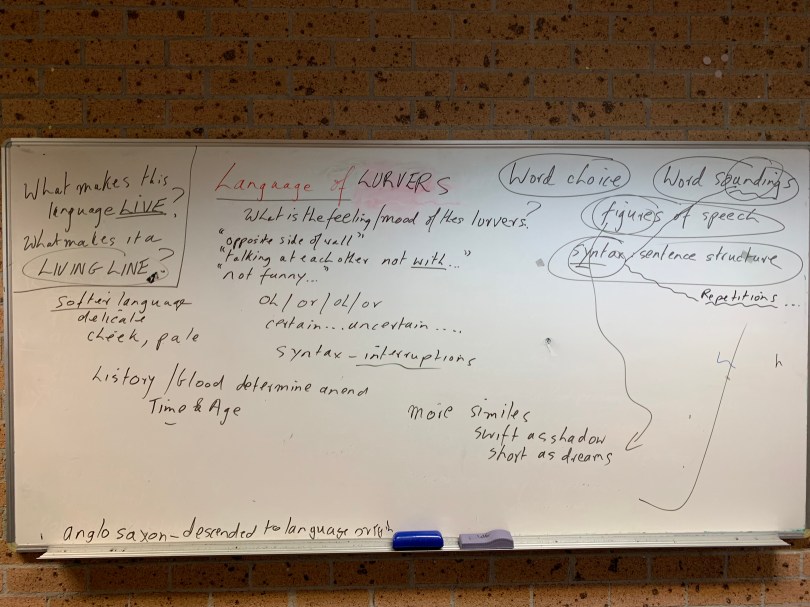 What makes this
language LIVE?
What makes it a
LIVING LINE?
Language of LURVERS
What is the feeling/mood of thes lurvers?
"opposite side of wall"
"talking at each other not with..."
"not funny..."
oh/or/oh/or
certain...uncertain....
syntax - interruptions
Softer language
delicate
cheek, pale
history/blood determine an end
Time & Age
more similes
swift as shadow
short as dreams
Word choice
Word soundings
figures of speech
syntax, sentence structure
Repetitions...
h
anglo saxon - descended to language